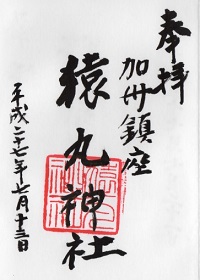 奉拝
加州鎮座
猿丸神社
平成二十七年七月十三日